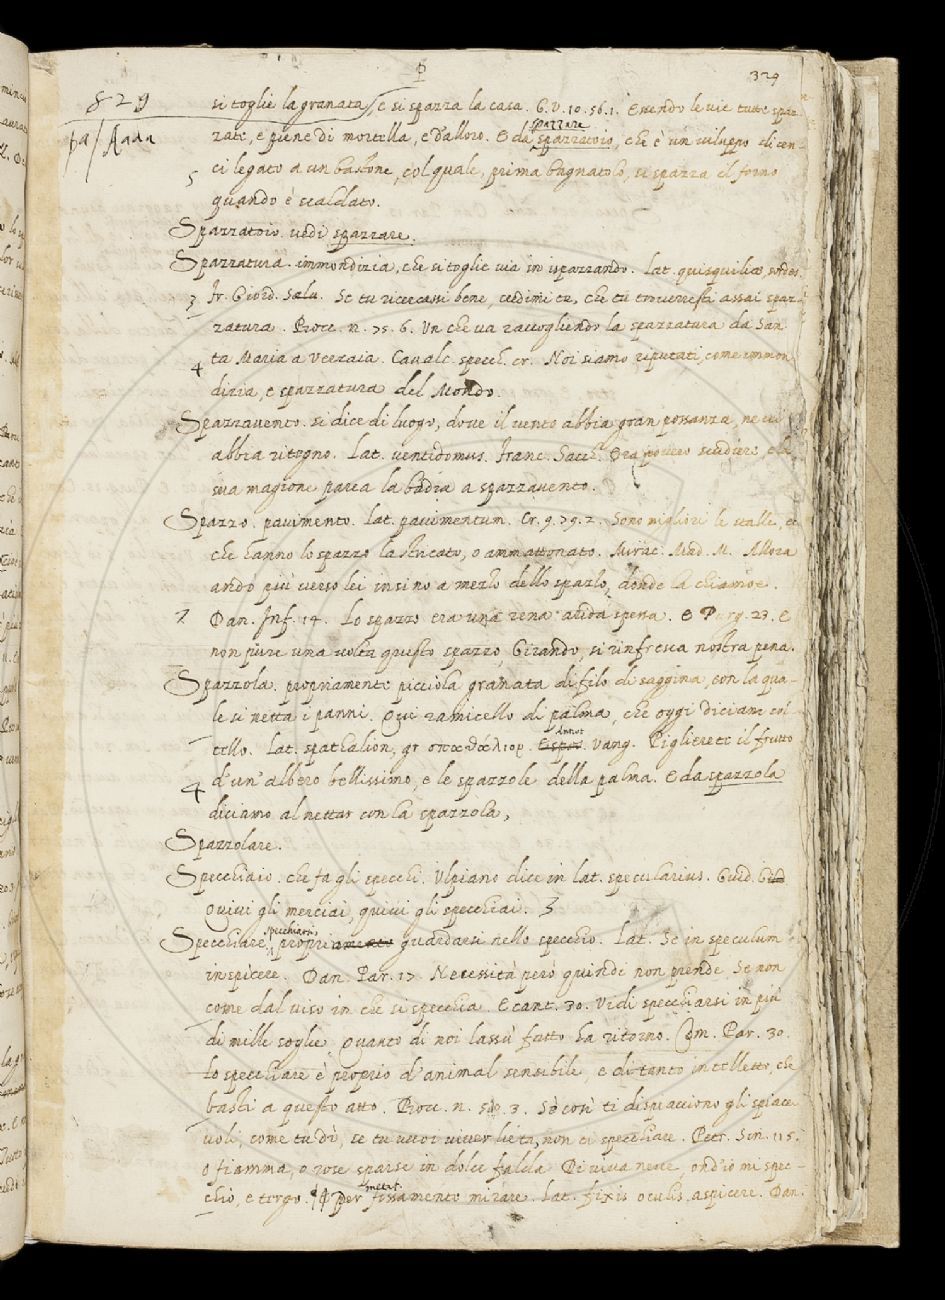 329
829
pa/Aaaa
si toglie la granata, e si spazza la casa. G.V. 10. 56. 1. Essendo le vie tutte spaz-
zate, e piene di mortella, e d'alloro. E da spazzare spazzatoio, che è un viluppo di cen-
5 ci legato a un bastone, col quale, prima bagnatolo, si spazza il forno
quando è scaldato.
Spazzatoio. vedi spazzare.
Spazzatura. immondizia, che si toglie via in ispazzando. Lat. quisquiliæ, sordes.
3 Fr. Giord. Salv. Se tu ricercassi bene, vedimi tu, che tu troverresti assai spaz-
zatura. Bocc. n. 75. 6. Un che va raccogliendo la spazzatura da San-
4 ta Maria a Verzaia. Cavalc. specch. cr. Noi siamo riputati, come immon-
dizia, e spazzatura del Mondo.
Spazzavento. si dice di luogo, dove il vento abbia gran possanza, ne vi
abbia ritegno. Lat. ventidomus. Franc. Sacch. Era povero scudiere, e la
sua magione parea la badia a spazzavento.
Spazzo. pavimento. Lat. pavimentum. Cr. 9. 79. 2. Sono migliori le stalle,
che hanno lo spazzo lastricato, o ammattonato. Mirac. Mad. M. Allora
andò più verso lei insino a mezzo dello spazzo, donde la chiamoe.
1 Dan. Inf. 14. Lo spazzo era una rena arida spessa. E Purg. 23. E
non pure una volta questo spazzo, Girando, si rinfresca nostra pena.
Spazzola. propriamente picciola granata di filo di saggina, con la qua-
le si netta i panni. Qui ramicello di palma, che oggi diciam col-
tello. Lat. spathalion, gr. σπαθάλιον. Espos. Annot. Vang. Piglierete il frutto
4 d'un'albero bellissimo, e le spazzole della palma. E da spazzola
diciamo al nettar con la spazzola,
Spazzolare.
Specchiaio. che fa gli specchi. Ulpiano dice in Lat. specularius. Guid. Giud.
Quivi gli merciai, quivi gli specchiai. 3
Specchiare, specchiarsi, propriamente guardarsi nello specchio. Lat. Se in speculum
inspicere. Dan. Par. 17. Necessità però quindi non prende Se non
come dal viso in che si specchia E cant. 30. Vidi specchiarsi in più
di mille soglie, Quanto di noi lassù fatto ha ritorno. Com. Par. 30.
Lo specchiare è proprio d'animal sensibile, e di tanto intelletto, che
basti a questo atto. Bocc. n. 58. 3. Se così ti dispiacciono gli spiace-
voli, come tu dì, se tu vuoi viver lieta, non ti specchiare. Petr. Son. 115.
O fiamma, o rose sparse in dolce falda Di viva neve, ond'io mi spec-
chio, e tergo. ¶ Per metaf. fissamente mirare. Lat. fixis oculis aspicere. Dan.